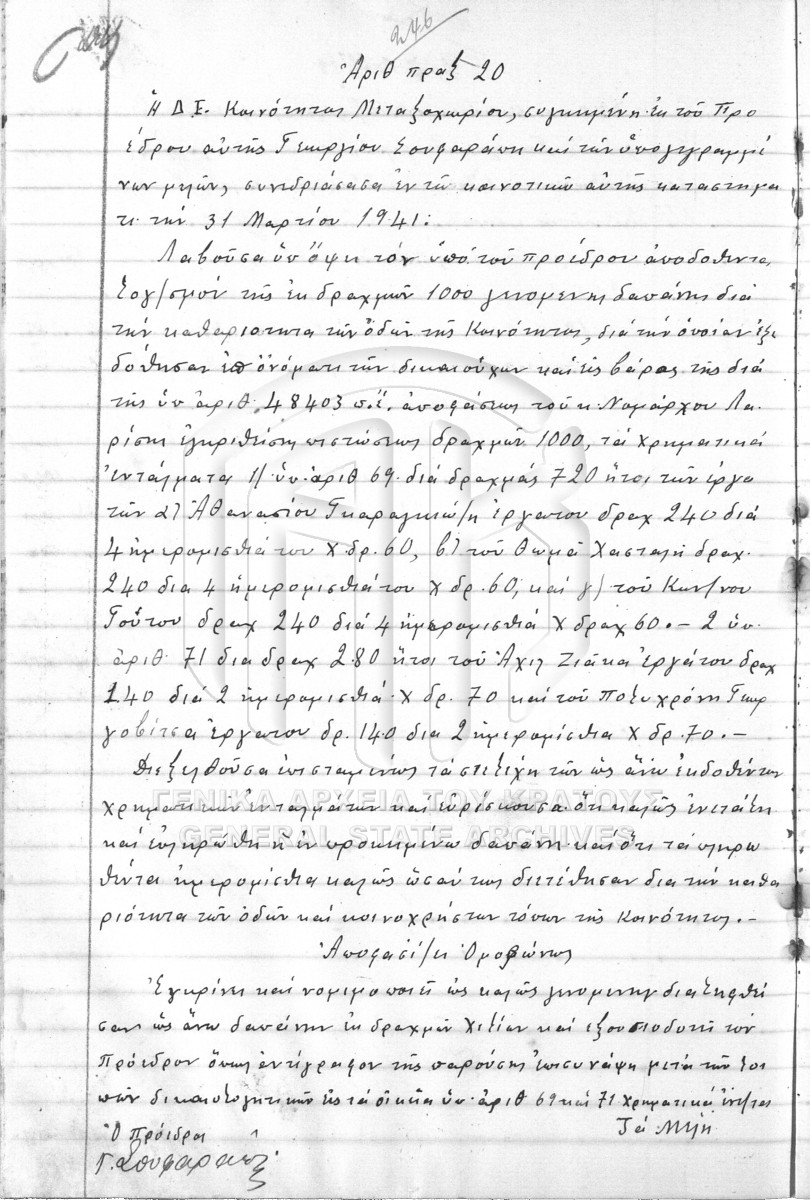 246
Ἀριθ πραξ 20
Ἡ Δ.Ε. Κοινότητας Μεταξοχωρίου, συγκιμένη ἐκ τοῦ Προ
έδρου αὐτῆς Γεωργίου Σουφαράπη καί τῶν ὑπογεγραμμέ
νων μελῶν, συνεδριάσασα ἐν τῶ κοινοτικῶ αὐτῆς καταστημα
τι τήν 31 Μαρτίου 1941:
Λαβοῦσα ὑπ ὄψη τόν ὑπό τοῦ προέδρου ἀποδοθέντα
λογ/σμόν τῆς ἐκ δραχμῶν 1000 γενομενης δαπάνης διά
τήν καθαριοτητα τῶν ὁδῶν τῆς Κοινότητος, διά τήν ὁποίαν ἐξε
δόθησαν ἐπ ὀνόματι τῶν δικαιούχων καί εἰς βάρος τῆς διά
τῆς ὑπ ἀριθ. 48403 π.ἔ. ἀποφάσεως τοῦ κ. Νομάρχου Λα
ρίσης ἐγκριθείσης πιστώσεως δραχμῶν 1000, τά χρηματικά
ἐντάλματα 1/ ὑπ ἀριθ 69 διά δραχμάς 720 ἤτοι τῶν ἐργα
τῶν α) Ἀθανασίου Γκαραγκιώ/η ἐργατου δραχ 240 διά
4 ἡμερομισθιά του Χ δρ. 60, β) τοῦ Θωμᾶ Χασταλῆ δραχ.
240 δια 4 ἡμερομισθιά του Χ δρ. 60, καί γ) τοῦ Κων/νου
Γοῦτου δραχ 240 διά 4 ἡμερομισθιά Χ δραχ 60.— 2 ὑπ
ἀριθ 71 δια δραχ 280 ἤτοι τοῦ Ἀχιλ Ζιάκα ἐργάτου δραχ
140 διά 2 ἡμερομισθιά Χ δρ. 70 καί τοῦ Πολυχρόνη Γεωρ
γοβίτσα ἐργατου δρ. 140 δια 2 ἡμερομίσθια Χ δρ. 70.—
Διεξελθοῦσα ἐπισταμένως τά στελέχη τῶν ὡς ἄνω ἐκδοθέντων
χρηματικῶν ἐνταλμάτων καί εὑρίσκουσα ὅτι καλῶς ἐνετάλη
καί ἐπληρώθη ἡ ἐν προκειμένω δαπάνη καί ὅτι τά πληρω
θέντα ἡμερομίσθια καλῶς ὡσαύτως διετέθησαν δια τήν καθα
ριότητα τῶν ὁδῶν καί κοινοχρήστων τόπων τῆς Κοινότητος.—
Ἀποφασί/ει Ὁμοφώνως
Ἐγκρίνει καί νομιμοποιεῖ ὡς καλῶς γενομενην διαληφθεῖ
σαν ὡς ἄνω δαπάνην ἐκ δραχμῶν χιλίων καί ἐξουσιοδοτεῖ τόν
πρόεδρον ὅπως ἀντίγραφον τῆς παρούσης ἐπισυνάψη μετά τῶν λοι
πῶν δικαιολογητικῶν εἰς τά οἰκεῖα ὑπ ἀριθ 69 καί 71 χρηματικά ἐντ/τα
Ὁ Πρόεδρος
Τά Μέλη
Γ. Σουφαράπης
ΓΕΝΙΚΑ ΑΡΧΕΙΑ ΤΟΥ ΚΡΑΤΟΥΣ
GENERAL STATE ARCHIVES